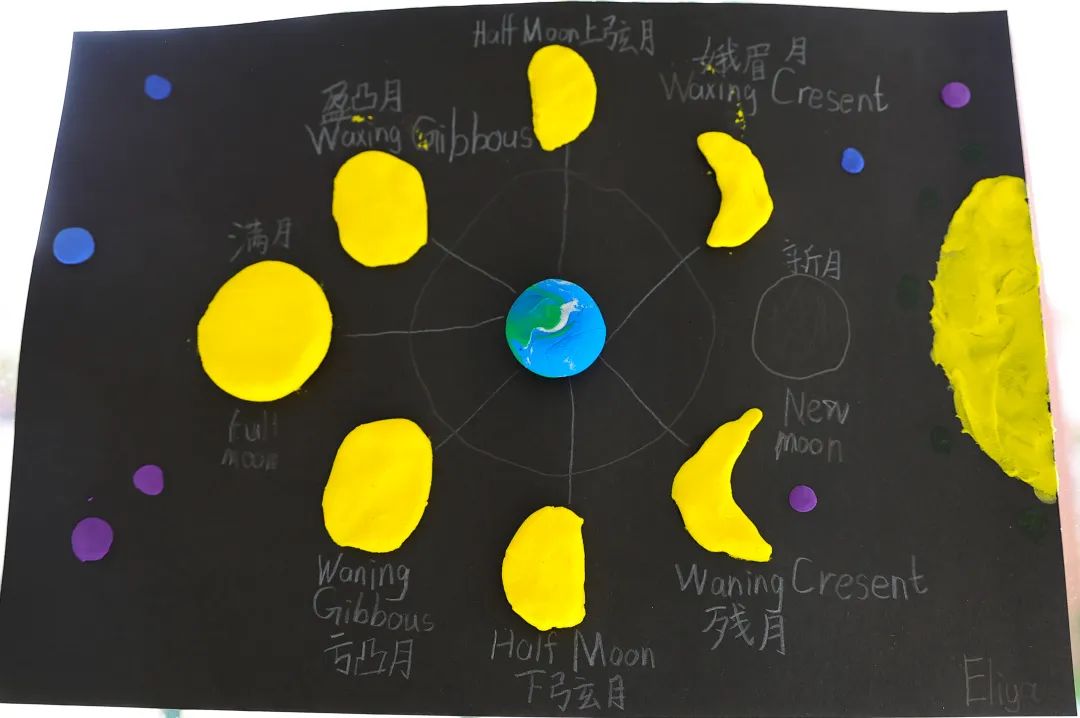 Half Moon上弦月
娥眉月
Waxing Cresent
盈凸月
Waxing Gibbous
满月
full
moon
新月
New
moon
Waning
Gibbous
亏凸月
Half Moon
下弦月
Waning Cresent
残月
Eliya